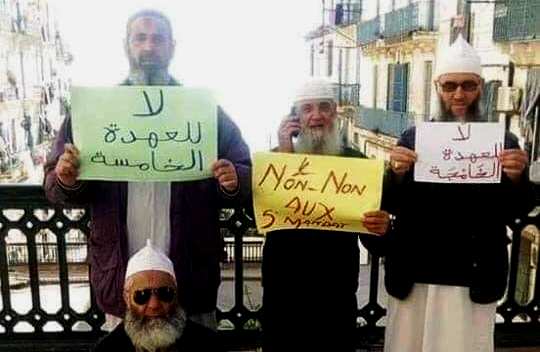 لا
للعهدة
الخامسة
NON-NON
AUX
5e MANDAT
لا
للعهدة
الخَامْجَة